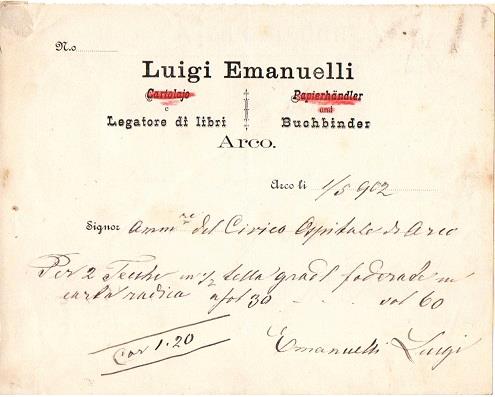 N.o
Luigi Emanuelli
Cartolajo Papierhändler
e and
Legatore di libri Buchbinder
Arco.
Arco li 1/5 902
Signor Ammre del Civico Ospitale di Arco
Per 2 in 1/2 tella foderate in
carta radica a sol 30 sol 60
Cor 1.20
Emanuelli Luigi